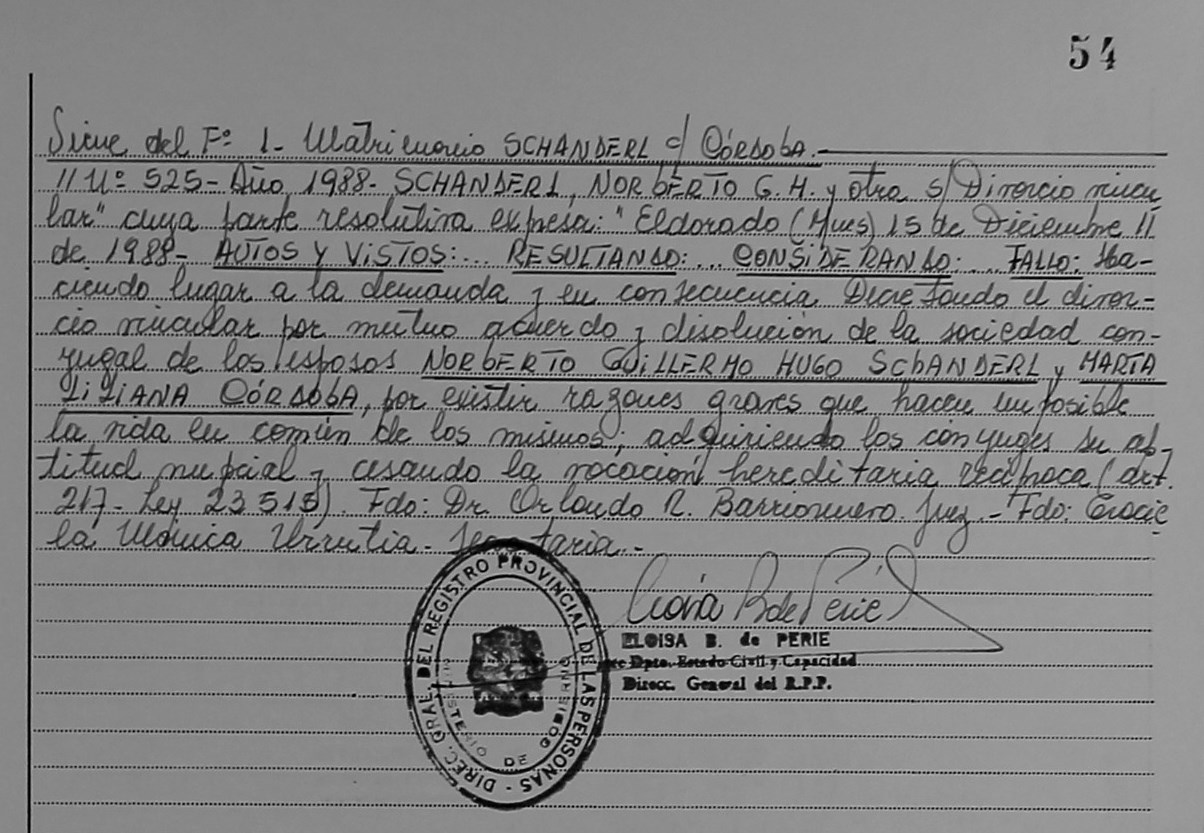 54
Sigue del Fº 1- Matrimonio SCHANDERL c/ CÓRDOBA.-
// Nº 525- Año 1988- SCHANDERL, NORBERTO G. H. y otra s/ Divorcio vincu
lar" cuya parte resolutiva expresa: "Eldorado (Mnes) 15 de Diciembre //
de 1988- AUTOS Y VISTOS:... RESULTANDO:... CONSIDERANDO:... FALLO: Ha-
ciendo lugar a la demanda y en consecuencia Decretando el divor-
cio vincular por mutuo acuerdo y disolución de la sociedad con-
yugal de los esposos NORBERTO GUILLERMO HUGO SCHANDERL y MARTA
LILIANA CÓRDOBA, por existir razones graves que hacen imposible
la vida en común de los mismos; adquiriendo los cónyuges su ap-
titud nupcial y cesando la vocación hereditaria recíproca (art.
217- Ley 23.515). Fdo: Dr. Orlando R. Barrionuevo. Juez.- Fdo: Gracie
la Mónica Urrutia- Secretaria.-
ELOISA B. de PERIE
Dpto. Estado Civil y Capacidad
Direcc. General del R.P.P.
DIREC. GRAL. DEL REGISTRO PROVINCIAL DE LAS PERSONAS -
MINISTERIO DE GOBIERNO